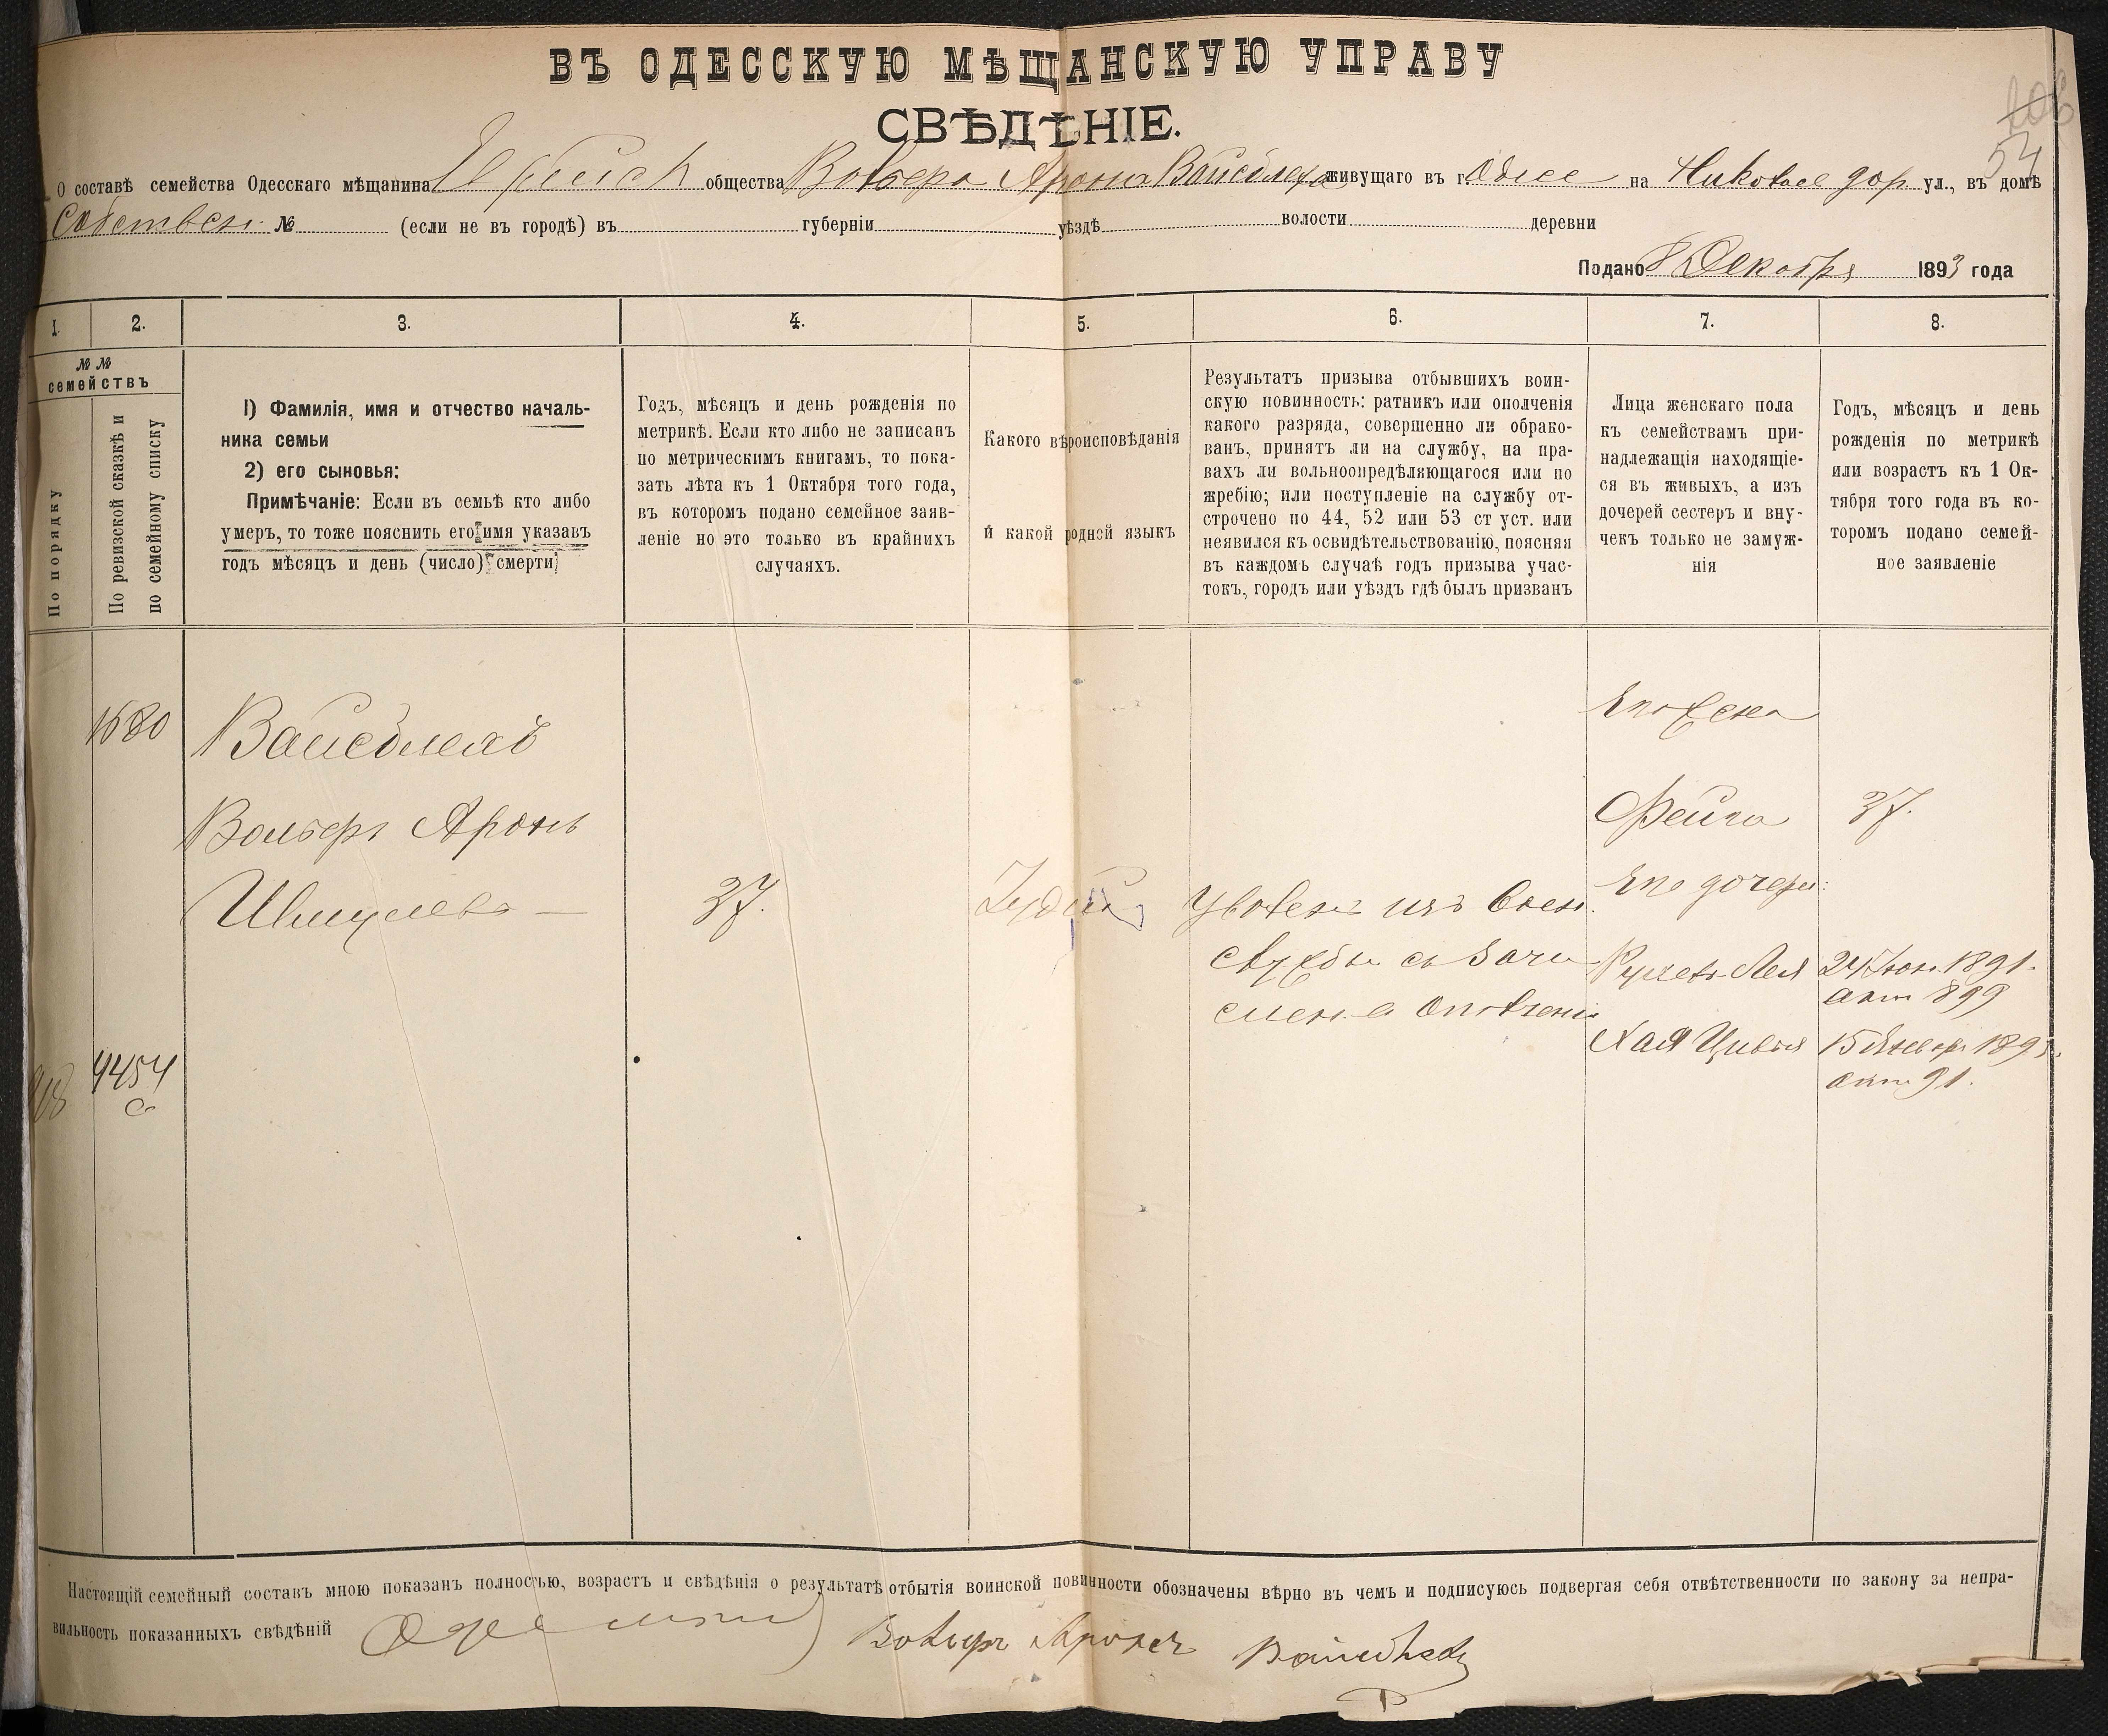 ВЪ ОДЕССКУЮ МѢЩАНСКУЮ УПРАВУ
СВѢДѢНІЕ.
54
О составѣ семейства Одесскаго мѣщанина общества Вольфа Арона живущаго въ г. Одессе на Николаев дор ул., въ домѣ
Собствен № (если не въ городѣ) въ губерніи уѣздѣ волости деревни
Подано 8 Декабря 1893 года
1. 2. 3. 4. 5. 6. 7. 8.
№№
семействъ
По порядку
По ревизской сказкѣ и
по семейному списку
1) Фамилія, имя и отчество началь-
ника семьи
2) его сыновья:
Примѣчаніе: Если въ семьѣ кто либо
умеръ, то тоже пояснить его имя указавъ
годъ мѣсяцъ и день (число) смерти
Годъ, мѣсяцъ и день рожденія по
метрикѣ. Если кто либо не записанъ
по метрическимъ книгамъ, то пока-
зать лѣта къ 1 Октября того года,
въ которомъ подано семейное заяв-
леніе но это только въ крайнихъ
случаяхъ.
Какого вѣроисповѣданія
и какой родной языкъ
Результатъ призыва отбывшихъ воин-
скую повинность: ратникъ или ополченія
какого разряда, совершенно ли обрако-
ванъ, принятъ ли на службу, на пра-
вахъ ли вольноопредѣляющагося или по
жребію; или поступленіе на службу от-
строчено по 44, 52 или 53 ст уст. или
неявился къ освидѣтельствованію, поясняя
въ каждомъ случаѣ годъ призыва учас-
токъ, городъ или уѣздъ гдѣ былъ призванъ
Лица женскаго пола
къ семействамъ при-
надлежащія находящіе-
ся въ живыхъ, а изъ
дочерей сестеръ и вну-
чекъ только не замуж-
нія
Годъ, мѣсяцъ и день
рожденія по метрикѣ
или возрастъ къ 1 Ок-
тября того года въ ко-
торомъ подано семей-
ное заявленіе
1680
4454
Вольфъ Аронъ
Шмулевъ —
37.
Іудей
Уволенъ изъ воен.
службы съ зачи
слен. в ополченіи
Его жена
Фейга 37.
Его дочери:
Рухль-Лея 24 Іюн. 1891.
акт 899
Хая Цивья 15 Января 1893.
акт 91.
Настоящій семейный составъ мною показанъ полностью, возрастъ и свѣдѣнія о результатѣ отбытія воинской повинности обозначены вѣрно въ чемъ и подписуюсь подвергая себя отвѣтственности по закону за непра-
вильность показанныхъ свѣдѣній